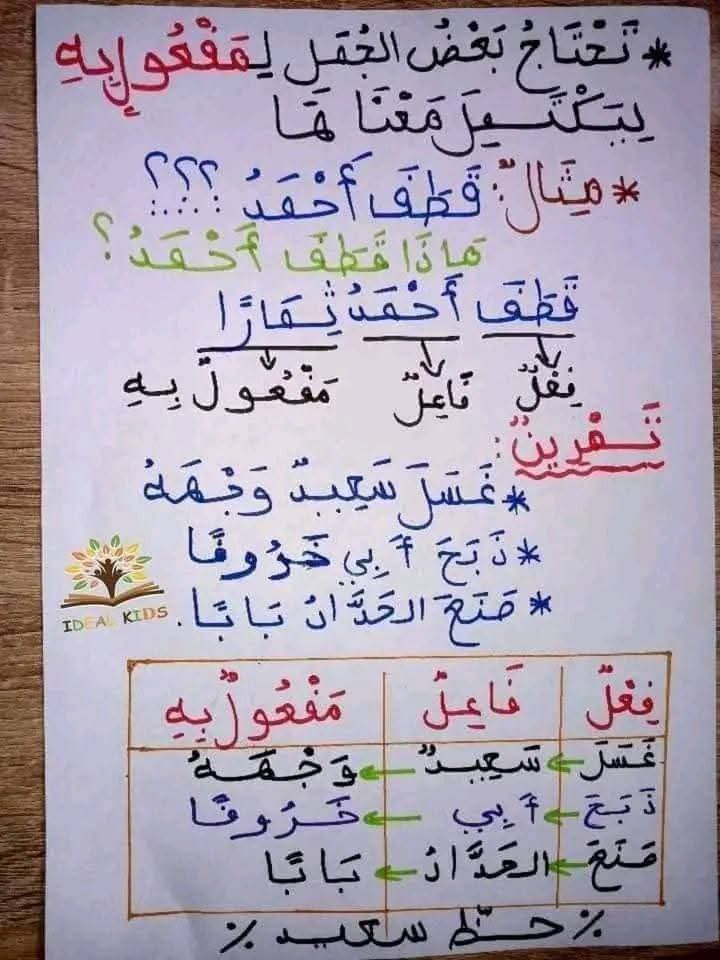 * تَحْتَاجُ بَعْضُ الجُمَلِ لِمَفْعُولٍ بِهِ
لِيَكْتَمِلَ مَعْنَاهَا
* مِثَالٌ: قَطَفَ أَحْمَدُ .....؟؟؟
مَاذَا قَطَفَ أَحْمَدُ؟
قَطَفَ أَحْمَدُ ثِمَارًا
فِعْلٌ فَاعِلٌ مَفْعُولٌ بِهِ
تَمْرِينٌ:
* غَسَلَ سَعِيدٌ وَجْهَهُ
* ذَبَحَ أَبِي خَرُوفًا
* صَنَعَ الحَدَّادُ بَابًا.
IDEAL KIDS
فِعْلٌ فَاعِلٌ مَفْعُولٌ بِهِ
غَسَلَ ← سَعِيدٌ ← وَجْهَهُ
ذَبَحَ ← أَبِي ← خَرُوفًا
صَنَعَ ← الحَدَّادُ ← بَابًا
٪ حظّ سعيد ٪